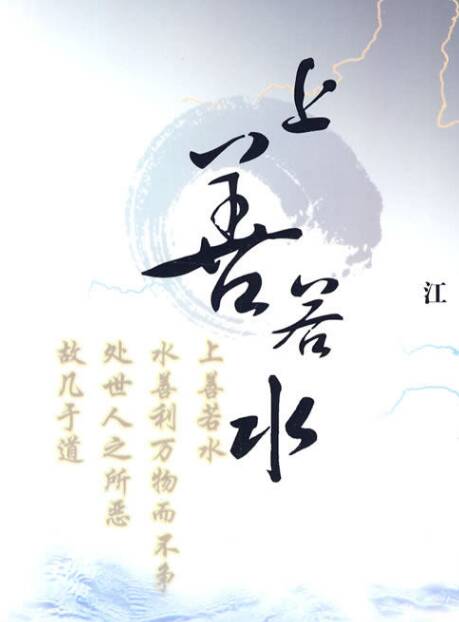 上善若水
江
上善若水
水善利万物而不争
处世人之所恶
故几于道